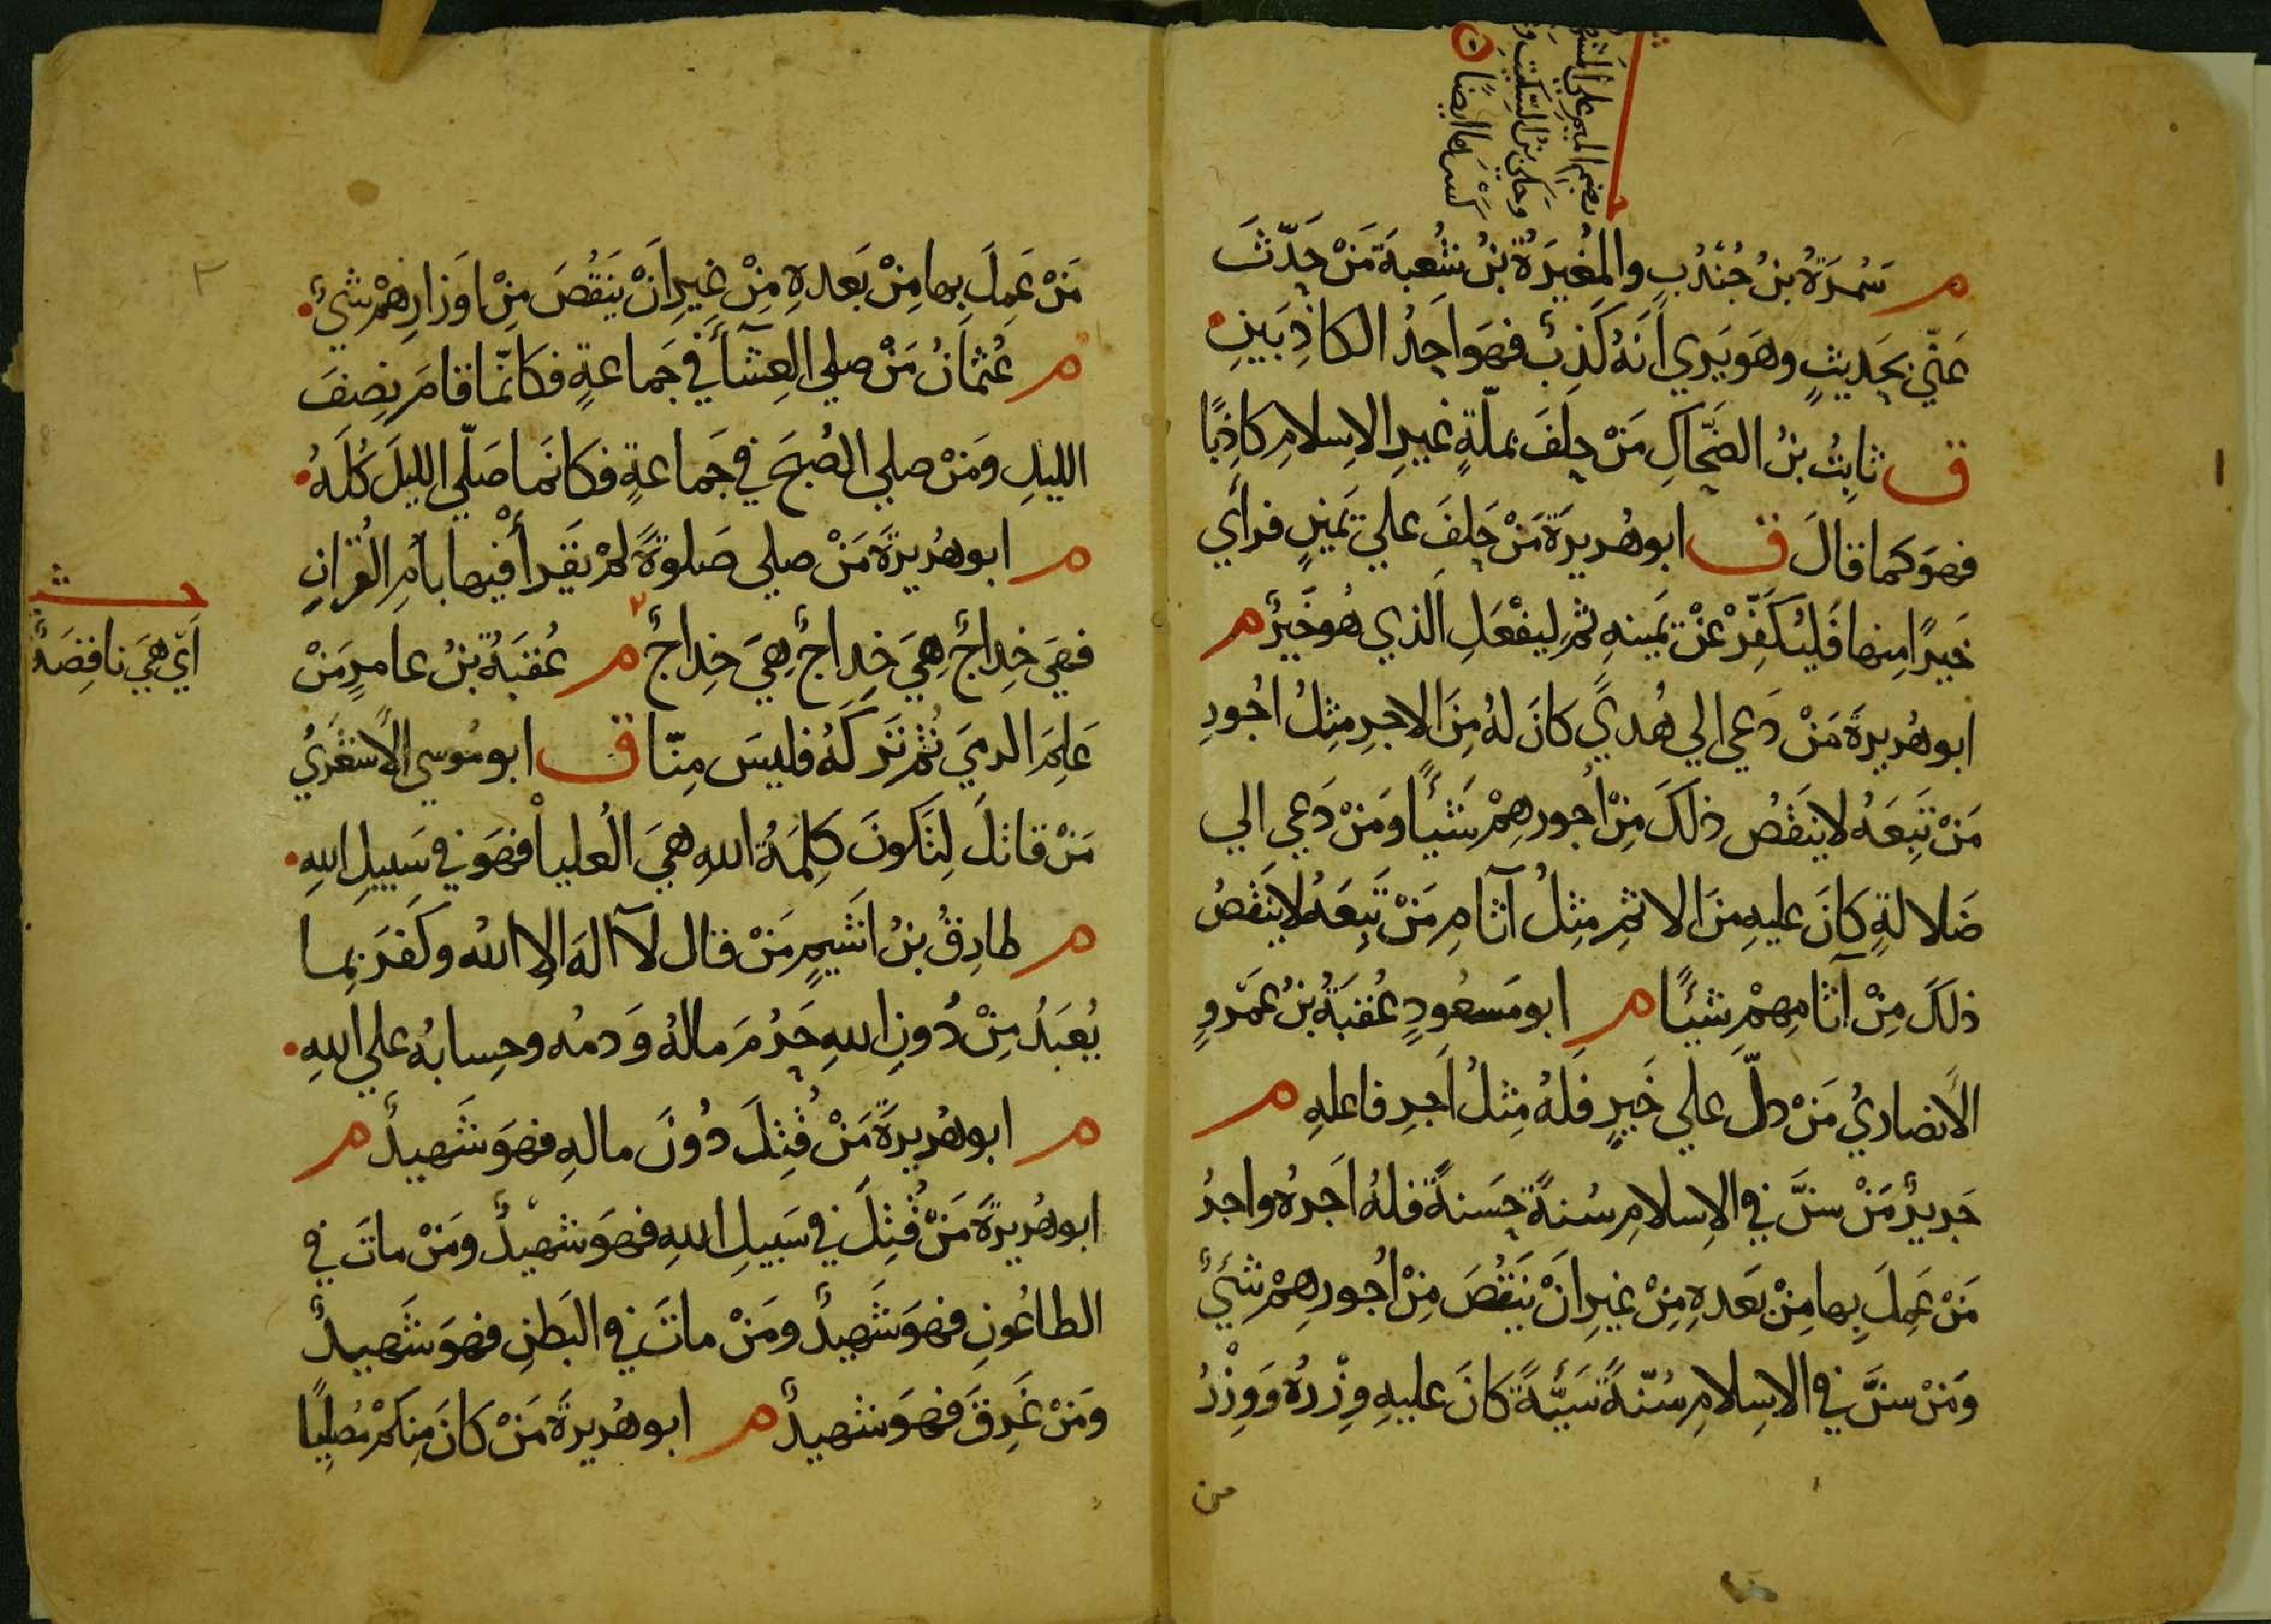 بضم الميم على المشهور
وحكى بن السكيت و
كسرها ايضًا
م سَمُرَةُ بنُ جُنْدُبٍ والمُغيَرةُ بنُ شُعبةَ مَنْ حَدّثَ
عَنّي بحَديثٍ وهَو يَري اَنَهُ كَذِبٌ فهَو اَحَدُ الكاذِبَينِ
ق ثابِتُ بنُ الضَحّاكِ مَنْ حلَفَ بملّةٍ غَيرِ الاِسلامِ كاذِبًا
فهَو كَما قالَ ق ابو هُريرَةَ مَنْ حَلفَ علي يَمينٍ فرأي
خَيرًا مِنها فَليُكَفِّرْ عَنْ يَمينهِ ثم ليفْعَلِ الَذي هُو خَيرٌ م
ابو هُريرةَ مَنْ دَعي الي هُديً كانَ لهُ مِنَ الاجرِ مِثلُ اُجُورِ
مَنْ تَبِعَهُ لا ينَقُصُ ذلكَ مِنْ أجورِهِمْ شَيئًا ومَنْ دَعي الي
ضَلالةٍ كانَ عليهِ مِنَ الاثمِ مِثلُ آثامِ مَنْ تَبِعَهُ لا ينَقُصُ
ذلكَ مِنْ آثامِهِمْ شيئًا م ابو مَسعُودٍ عُقبَةُ بنُ عَمْروٍ
الأنصاريُ مَنْ دلّ علي خَيرٍ فلهُ مِثلُ اَجرِ فاعلهِ م
جَريرٌ مَنْ سنَّ في الاِسلامِ سُنةً حَسَنةً فلهُ اَجرهُ واجرُ
مَنْ عَمِلَ بِها مِنْ بَعَدهِ مِنْ غيرِ انْ يَنقُصَ مِنْ اُجُورهِمْ شئٌ
ومَنْ سنَّ في الاسِلامِ سُنّةً سَيّئَةً كانَ عليهِ وِزْرهُ وَوِزْرُ
من
مَنْ عَمِلَ بها مِنْ بَعَدهِ مِنْ غيرِ اَنْ يَنَقُصَ مِنْ اوَزارِهمْ شئٌ
م عُثمانُ مَنْ صلي العِشآءَ في جَماعةٍ فكانمّا قامَ نِصفَ
الليلِ ومَنْ صلي الصُبحَ في جَماعةٍ فكانمَا صَلّي الليلَ كُلَهُ
م ابو هُريرَةَ مَنْ صلي صَلوةً لمْ يَقَرأْ فيها بأمِ القُرآنِ
فهيَ خِداجٌ هِيَ خِداجٌ هِيَ خِداجٌ م عُقبَةُ بنُ عامرٍ مَنْ
عَلِمَ الرميَ ثُم تَركَهُ فليسَ مِنّا ق ابو مُوسي الأشعَريُ
مَنْ قاتلَ لِتَكونَ كلِمَةُ اللهِ هيَ العُليا فهَو في سَبيلِ اللهِ
م طارِقُ بنُ اشَيمٍ مَنْ قال لآ الهَ الاِ اللهُ وكَفَر بِما
يُعبَدُ مِنْ دُونِ اللهِ حَرُمَ مالهُ وَدمُه وحِسابهُ علي اللهِ
م ابو هُريرةَ مَنْ قُتِلَ دُونَ مالهِ فهَو شَهيدٌ م
ابو هُريرةَ مَنْ قُتِلَ في سَبيلِ اللهِ فهَو شهيدٌ ومَنْ ماتَ في
الطاعُونِ فهوَ شَهيدٌ ومَنْ ماتَ في البَطنِ فهوَ شَهيدٌ
ومَنْ غَرِقَ فهوَ شهيدٌ م ابو هُريرةَ مَنْ كانَ مِنكمْ مُصلِيًا
اَيّ هيَ ناقِصَةٌ